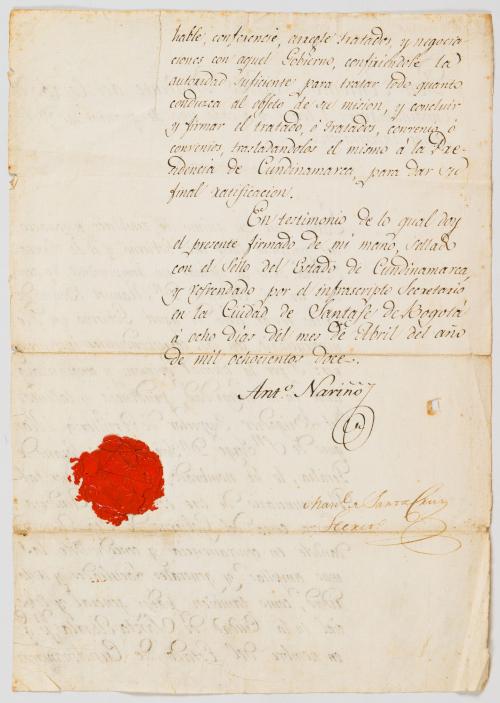 hable, conferencie, arregle tratados, y negocia-
ciones con aquel Gobierno, confiriendole la
autoridad suficiente para tratar todo quanto
conduzca al objeto de su mision, y concluir
y firmar el tratado, ó tratados, convenio, ó
convenios, trasladandolos el mismo á la Pre-
sidencia de Cundinamarca, para dar su
final ratificacion.
En testimonio de lo qual doy
el presente firmado de mi mano, sellado
con el Sello del Estado de Cundinamarca,
y refrendado por el infrascripto Secretario
en la Ciudad de Santafe de Bogotá
á ocho dias del mes de Abril del año
de mil ochocientos doce.
Anto. Nariño